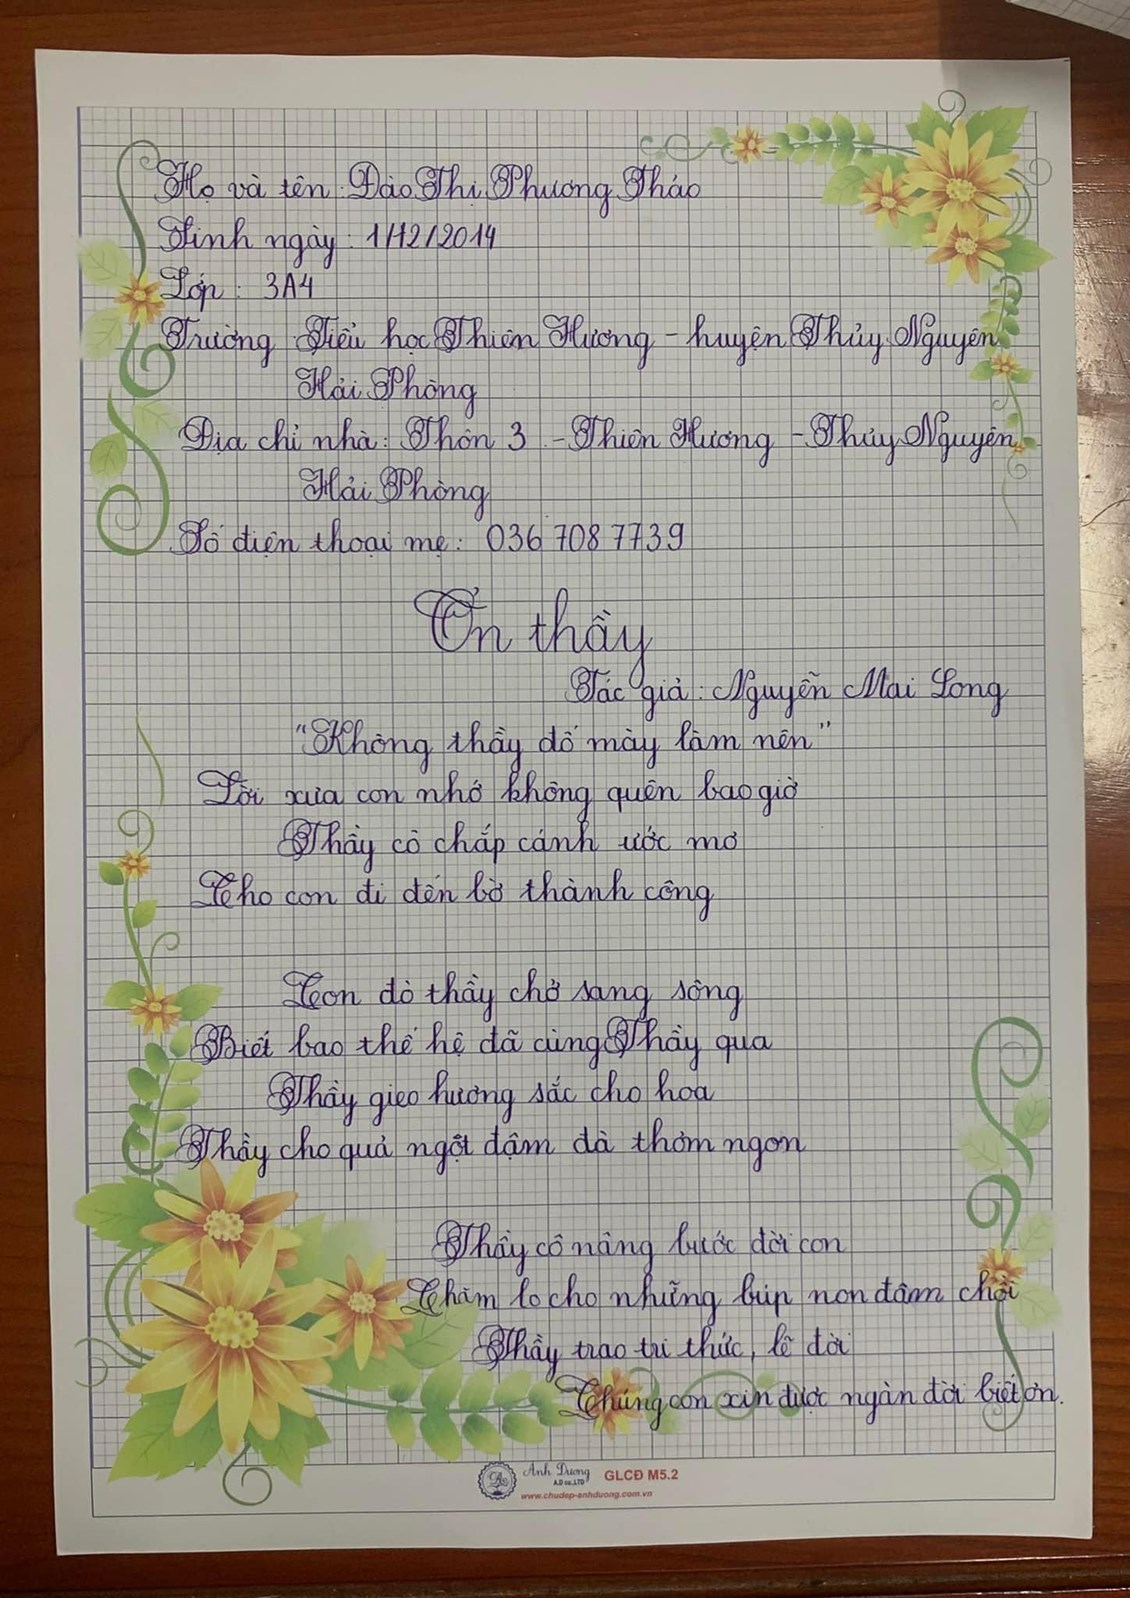 Họ và tên: Đào Thị Phương Thảo
Sinh ngày: 1/12/2014
Lớp: 3A4
Trường Tiểu học Thiên Hương - huyện Thủy Nguyên
Hải Phòng
Địa chỉ nhà: Thôn 3 - Thiên Hương - Thủy Nguyên
Hải Phòng
Số điện thoại mẹ: 036 708 7739
Ơn thầy
Tác giả: Nguyễn Mai Long
"Không thầy đố mày làm nên"
Lời xưa con nhớ không quên bao giờ
Thầy cô chắp cánh ước mơ
Cho con đi đến bờ thành công
Con đò thầy chở sang sông
Biết bao thế hệ đã cùng Thầy qua
Thầy gieo hương sắc cho hoa
Thầy cho quả ngọt đậm đà thơm ngon
Thầy cô nâng bước đời con
Chăm lo cho những búp non đâm chồi
Thầy trao tri thức, lẽ đời
Chúng con xin được ngàn đời biết ơn.
Ánh Dương GLCĐ M5.2
A.D co.,LTD
www.chudep-anhduong.com.vn